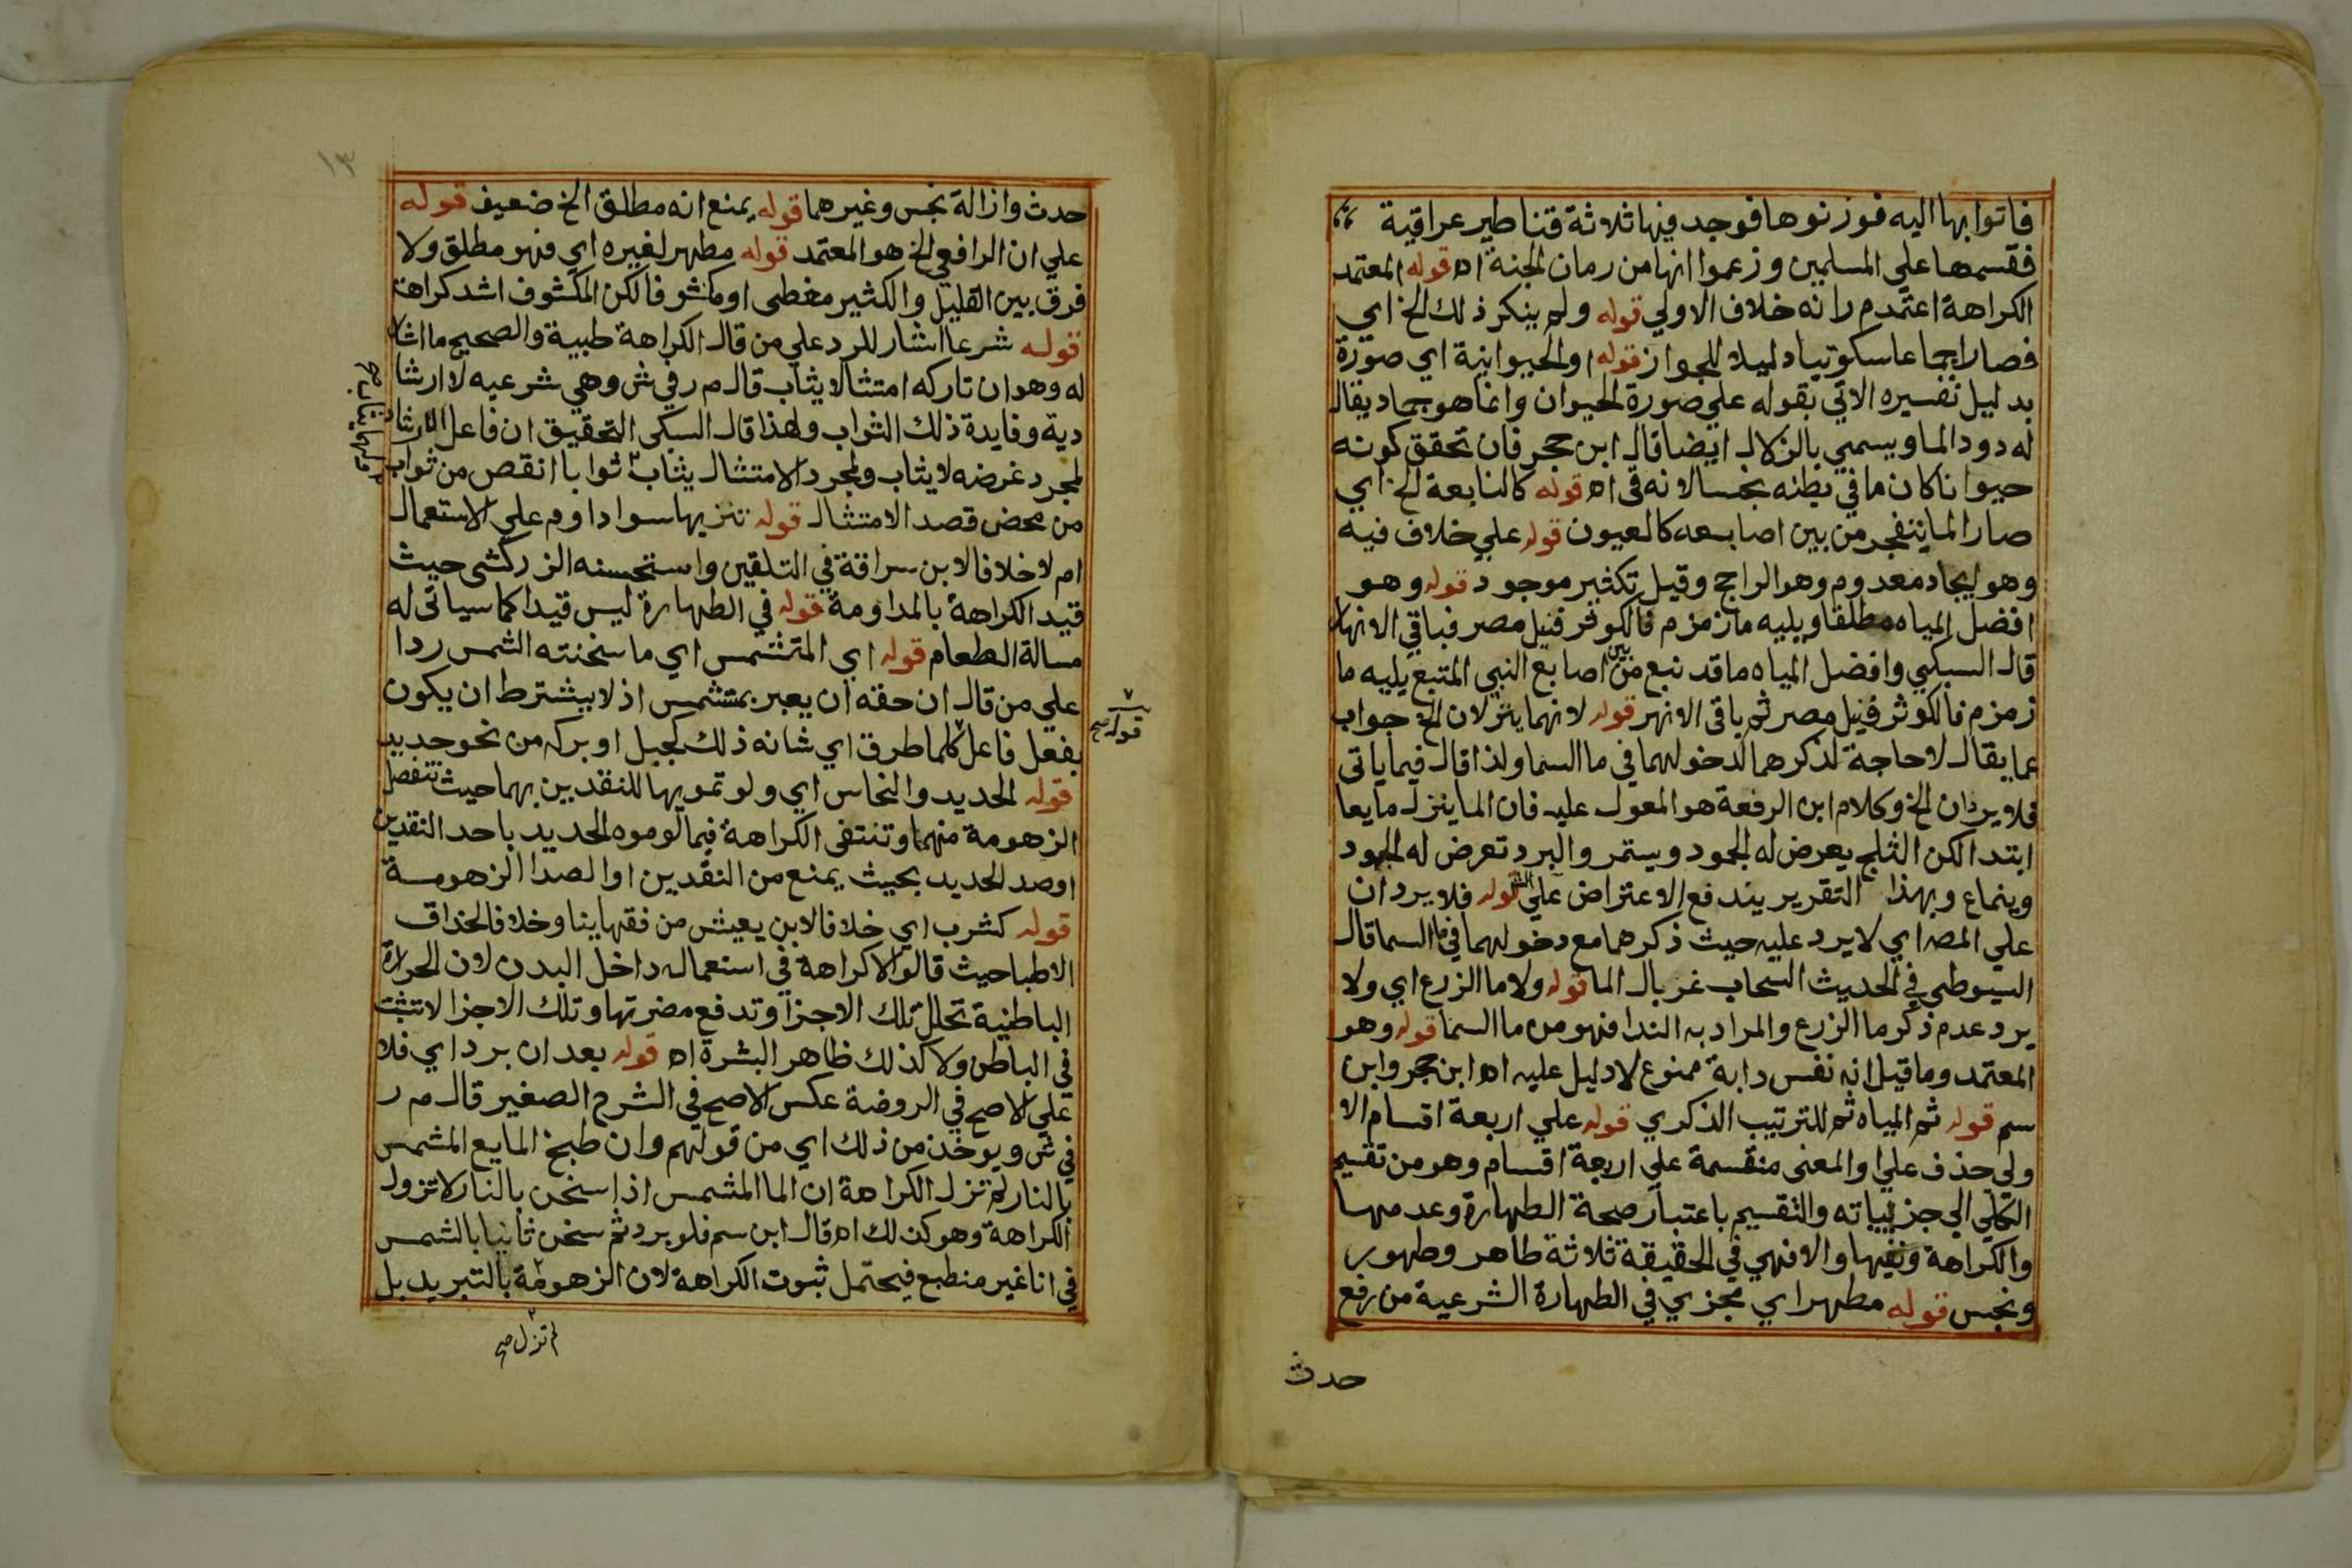 فاتوا بها اليه فوزنوها فوجد فيها ثلاثة قناطير عراقية
فقسمها علي المسلمين وزعموا انها من رمان الجنة اه قوله المعتمد
الكراهة اعتمد م ر انه خلاف الاولي قوله ولم ينكر ذلك الخ اي
فصار اجماعا سكوتيا دليلا للجواز قوله او الحيوانية اي صورة
بدليل تفسيره الاتي بقوله علي صورة الحيوان وانما هو جماد يقال
له دود الما ويسمي بالزلال ايضا قال ابن حجر فان تحقق كونه
حيوانا كان ما في بطنه نجسا لانه قي اه قوله كالنابعة الخ اي
صار الما يتفجر من بين اصابعه كالعيون قوله علي خلاف فيه
وهو ايجاد معدوم وهو الراجح وقيل تكثير موجود قوله وهو
افضل المياه مطلقا ويليه ما زمزم فالكوثر فنيل مصر فباقي الانهار
قال السبكي وافضل المياه ما قد نبع من بين اصابع النبي المتبع يليه ما
زمزم فالكوثر فنيل مصر ثم باقي الانهر قوله لانهما ينزلان الخ جواب
عما يقال لا حاجة لذكرهما لدخولهما في ما السما ولذا قال فيما ياتي
فلا يردان الخ وكلام ابن الرفعة هو المعول عليه فان الما ينزل مايعا
ابتدا لكن الثلج يعرض له الجمود ويستمر والبرد تعرض له الجمود
وينماع وبهذا التقرير يندفع الاعتراض علي الش قوله فلا يردان
علي المصه اي لا يرد عليه حيث ذكرهما مع دخولهما في ما السما قال
السيوطي في الحديث السحاب غربال الما قوله ولا ما الزرع اي ولا
يرد عدم ذكر ما الزرع والمراد به الندا فهو من ما السما قوله وهو
المعتمد وما قيل انه نفس دابة ممنوع لا دليل عليه اه ابن حجر وابن
سم قوله ثم المياه ثم للترتيب الذكري قوله علي اربعة اقسام الا
ولي حذف علي او المعني منقسمة علي اربعة اقسام وهو من تقسيم
الكلي الي جزيياته والتقسيم باعتبار صحة الطهارة وعدمها
والكراهة ونفيها والا فهي في الحقيقة ثلاثة طاهر وطهور
ونجس قوله مطهر اي مجزي في الطهارة الشرعية من رفع
حدث
١٣
حدث وازالة نجس وغيرهما قوله يمنع انه مطلق الخ ضعيف قوله
علي ان الرافعي الخ هو المعتمد قوله مطهر لغيره اي فهو مطلق ولا
فرق بين القليل والكثير مغطى او مكشوفا لكن المكشوف اشد كراهة
قوله شرعا اشار للرد علي من قال الكراهة طبية والصحيح ما اشار
له وهو ان تاركه امتثالا يثاب قال م ر في ش وهي شرعيه لا ارشا
دية وفايدة ذلك الثواب ولهذا قال السبكي التحقيق ان فاعل الارشاد
لمجرد غرضه لا يثاب ولمجرد الامتثال يثاب ثوابا انقص من ثواب
من محض قصد الامتثال قوله تنزيها سوا داوم علي الاستعمال
ام لا خلافا لابن سراقة في التلقين واستحسنه الزركشي حيث
قيد الكراهة بالمداومة قوله في الطهارة ليس قيدا كما سياتي له
مسالة الطعام قوله اي المتشمس اي ما سخنته الشمس ردا
علي من قال ان حقه ان يعبر بمتشمس اذ لا يشترط ان يكون
بفعل فاعل كلما طرق اي شانه ذلك كجبل او بركه من نحو جديد
قوله صح
قوله الحديد والنحاس اي ولو تمويها للنقدين بهما حيث تنفصل
الزهومة منهما وتنتفي الكراهة فيما لو موه الحديد باحد النقدين
او صدا الحديد بحيث يمنع من النقدين او الصدا الزهومة
قوله كشرب اي خلافا لابن يعيش من فقهاينا وخلافا لحذاق
الاطبا حيث قالوا لا كراهة في استعماله داخل البدن لان الحرارة
الباطنية تحلل تلك الاجزا وتدفع مضرتها وتلك الاجزا لا تثبت
في الباطن ولا كذلك ظاهر البشرة اه قوله بعد ان برد اي فلا
علي الاصح في الروضة عكس الاصح في الشرح الصغير قال م ر
في ش ويوخذ من ذلك اي من قولهم وان طبخ المايع المشمس
بالنار لم تزل الكراهة ان الما المشمس اذا سخن بالنار لا تزول
الكراهة وهو كذلك اه قال ابن سم فلو برد ثم سخن ثانيا بالشمس
في انا غير منطبع فيحتمل ثبوت الكراهة لان الزهومة بالتبريد بل
لم تزل صح